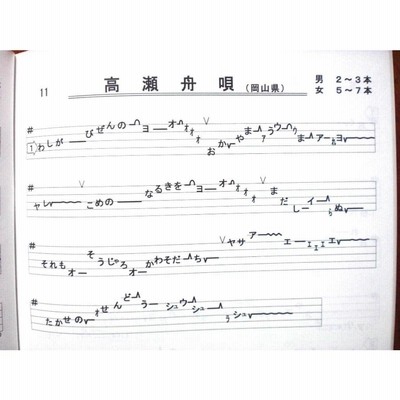 11 高瀬舟唄 (岡山県) 男 2〜3本
女 5〜7本
# 1 わしが びぜんの ヨー オ オ オ オ おか やま ァ うウゥ ま アー ヨー
# ヤレ こめの なるきを ヨー オ オ オ オ まだ しーイー ぬ
それも オー そうじゃろ オー かわそだーち ヤサ アー エー エ エ エ
# たかせの オ せんどうー シュウー シュー ゥ シュ